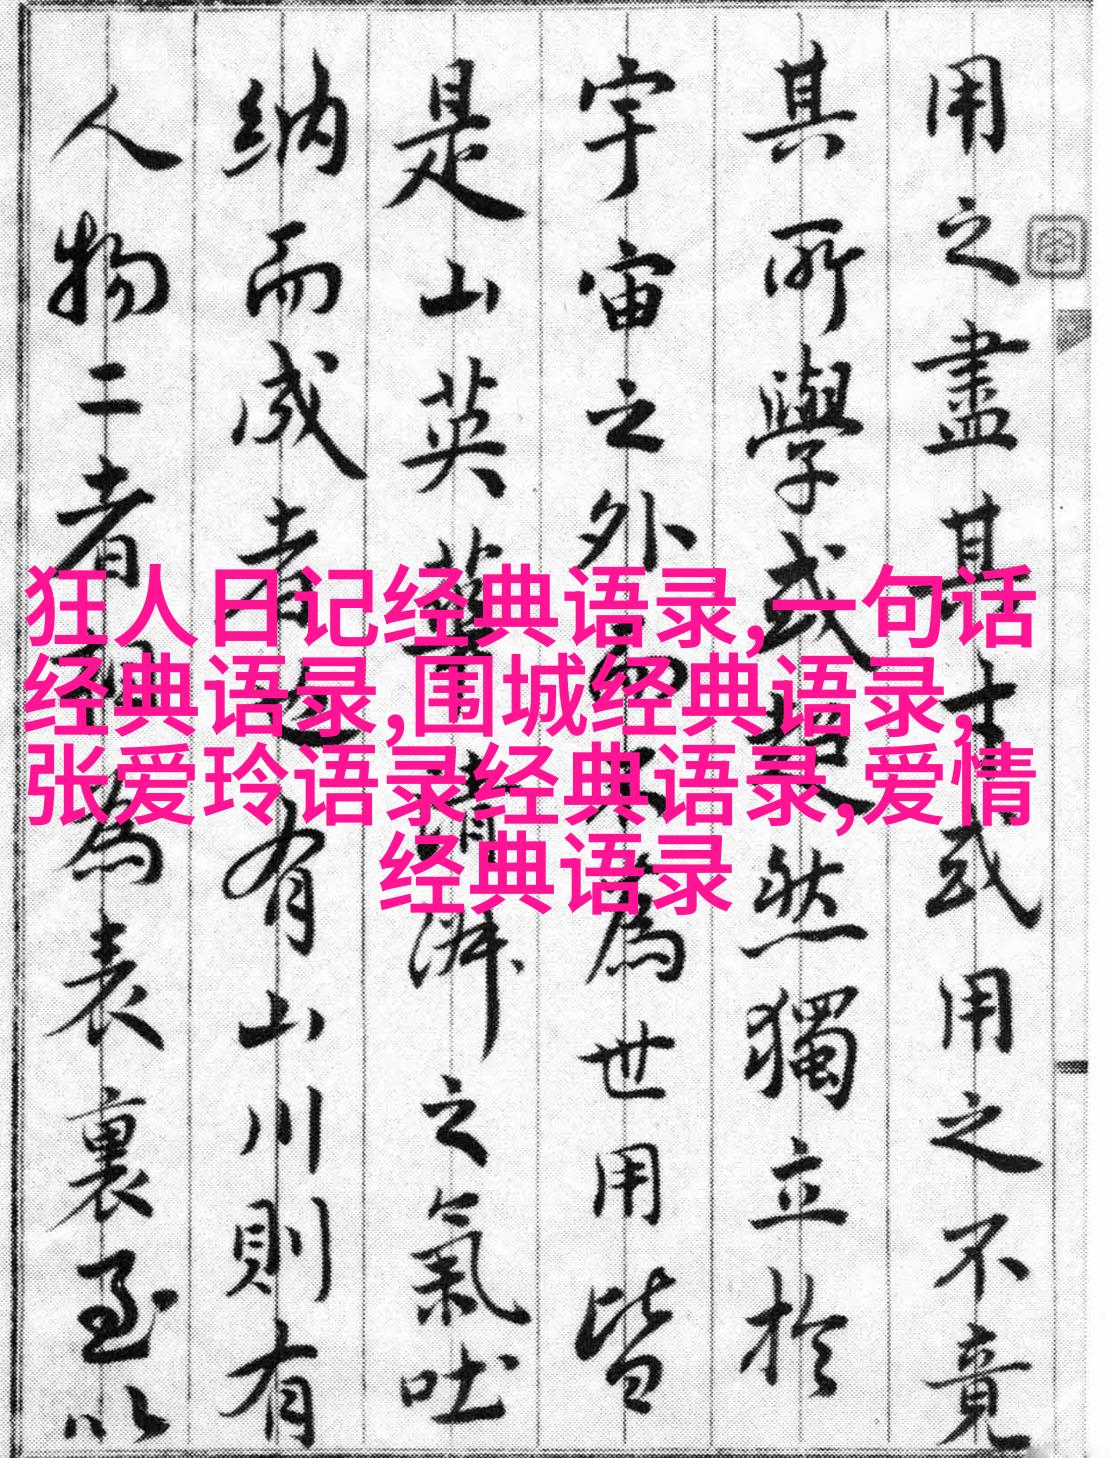 用之盡其或用之不竟
其所學或超然獨立於
宇宙之外而不為世用皆
是山英華清淑之氣吐
納而成者也有山川則有
人物二者相為表裏至以
狂人日记经典语录,一句话
经典语录,围城经典语录,
张爱玲语录经典语录,爱情
经典语录